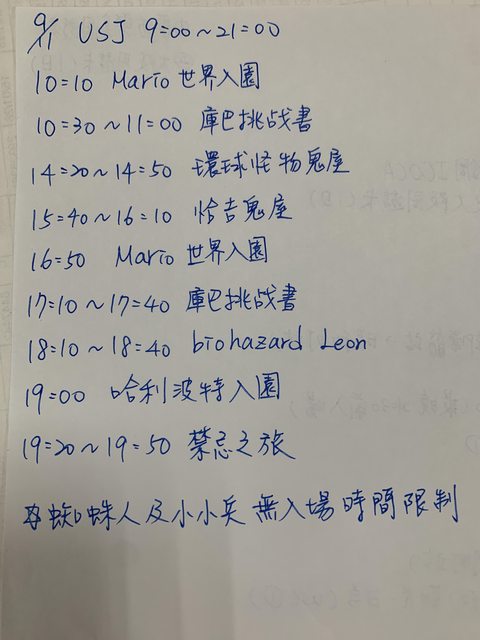 9/11 USJ 9:00~21:00
10:10 Mario世界入園
10:30~11:00 庫巴挑战書
14:20~14:50 環球怪物鬼屋
15:40~16:10 恰吉鬼屋
16:50 Mario世界入園
17:10~17:40 庫巴挑战書
18:10~18:40 biohazard Leon
19:00 哈利波特入園
19:20~19:50 禁忌之旅
蜘蛛人及小小兵無入場時間限制